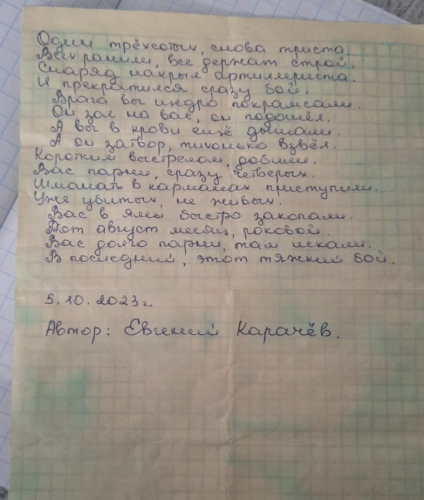 Один трёхсотых, снова триста,
Вах ранили, все держат строй.
Снаряд накрыл артиллериста.
И прекратился сразу бой.
Врага вы щедро покрамсали.
Он зол на вас, он подошёл.
А вы в крови ещё дышали.
А он затвор, тихонько взвёл.
Коротким выстрелом, добили.
Вас парни, сразу четверых.
Шманать в карманах приступили.
Уже убитых, не живых.
Вас в яме быстро закопали.
Тот август месяц, роковой.
Вас долго парни, там искали.
В последний, этот тяжкий бой.
5.10.2023г.
Автор: Евгений Карачёв.